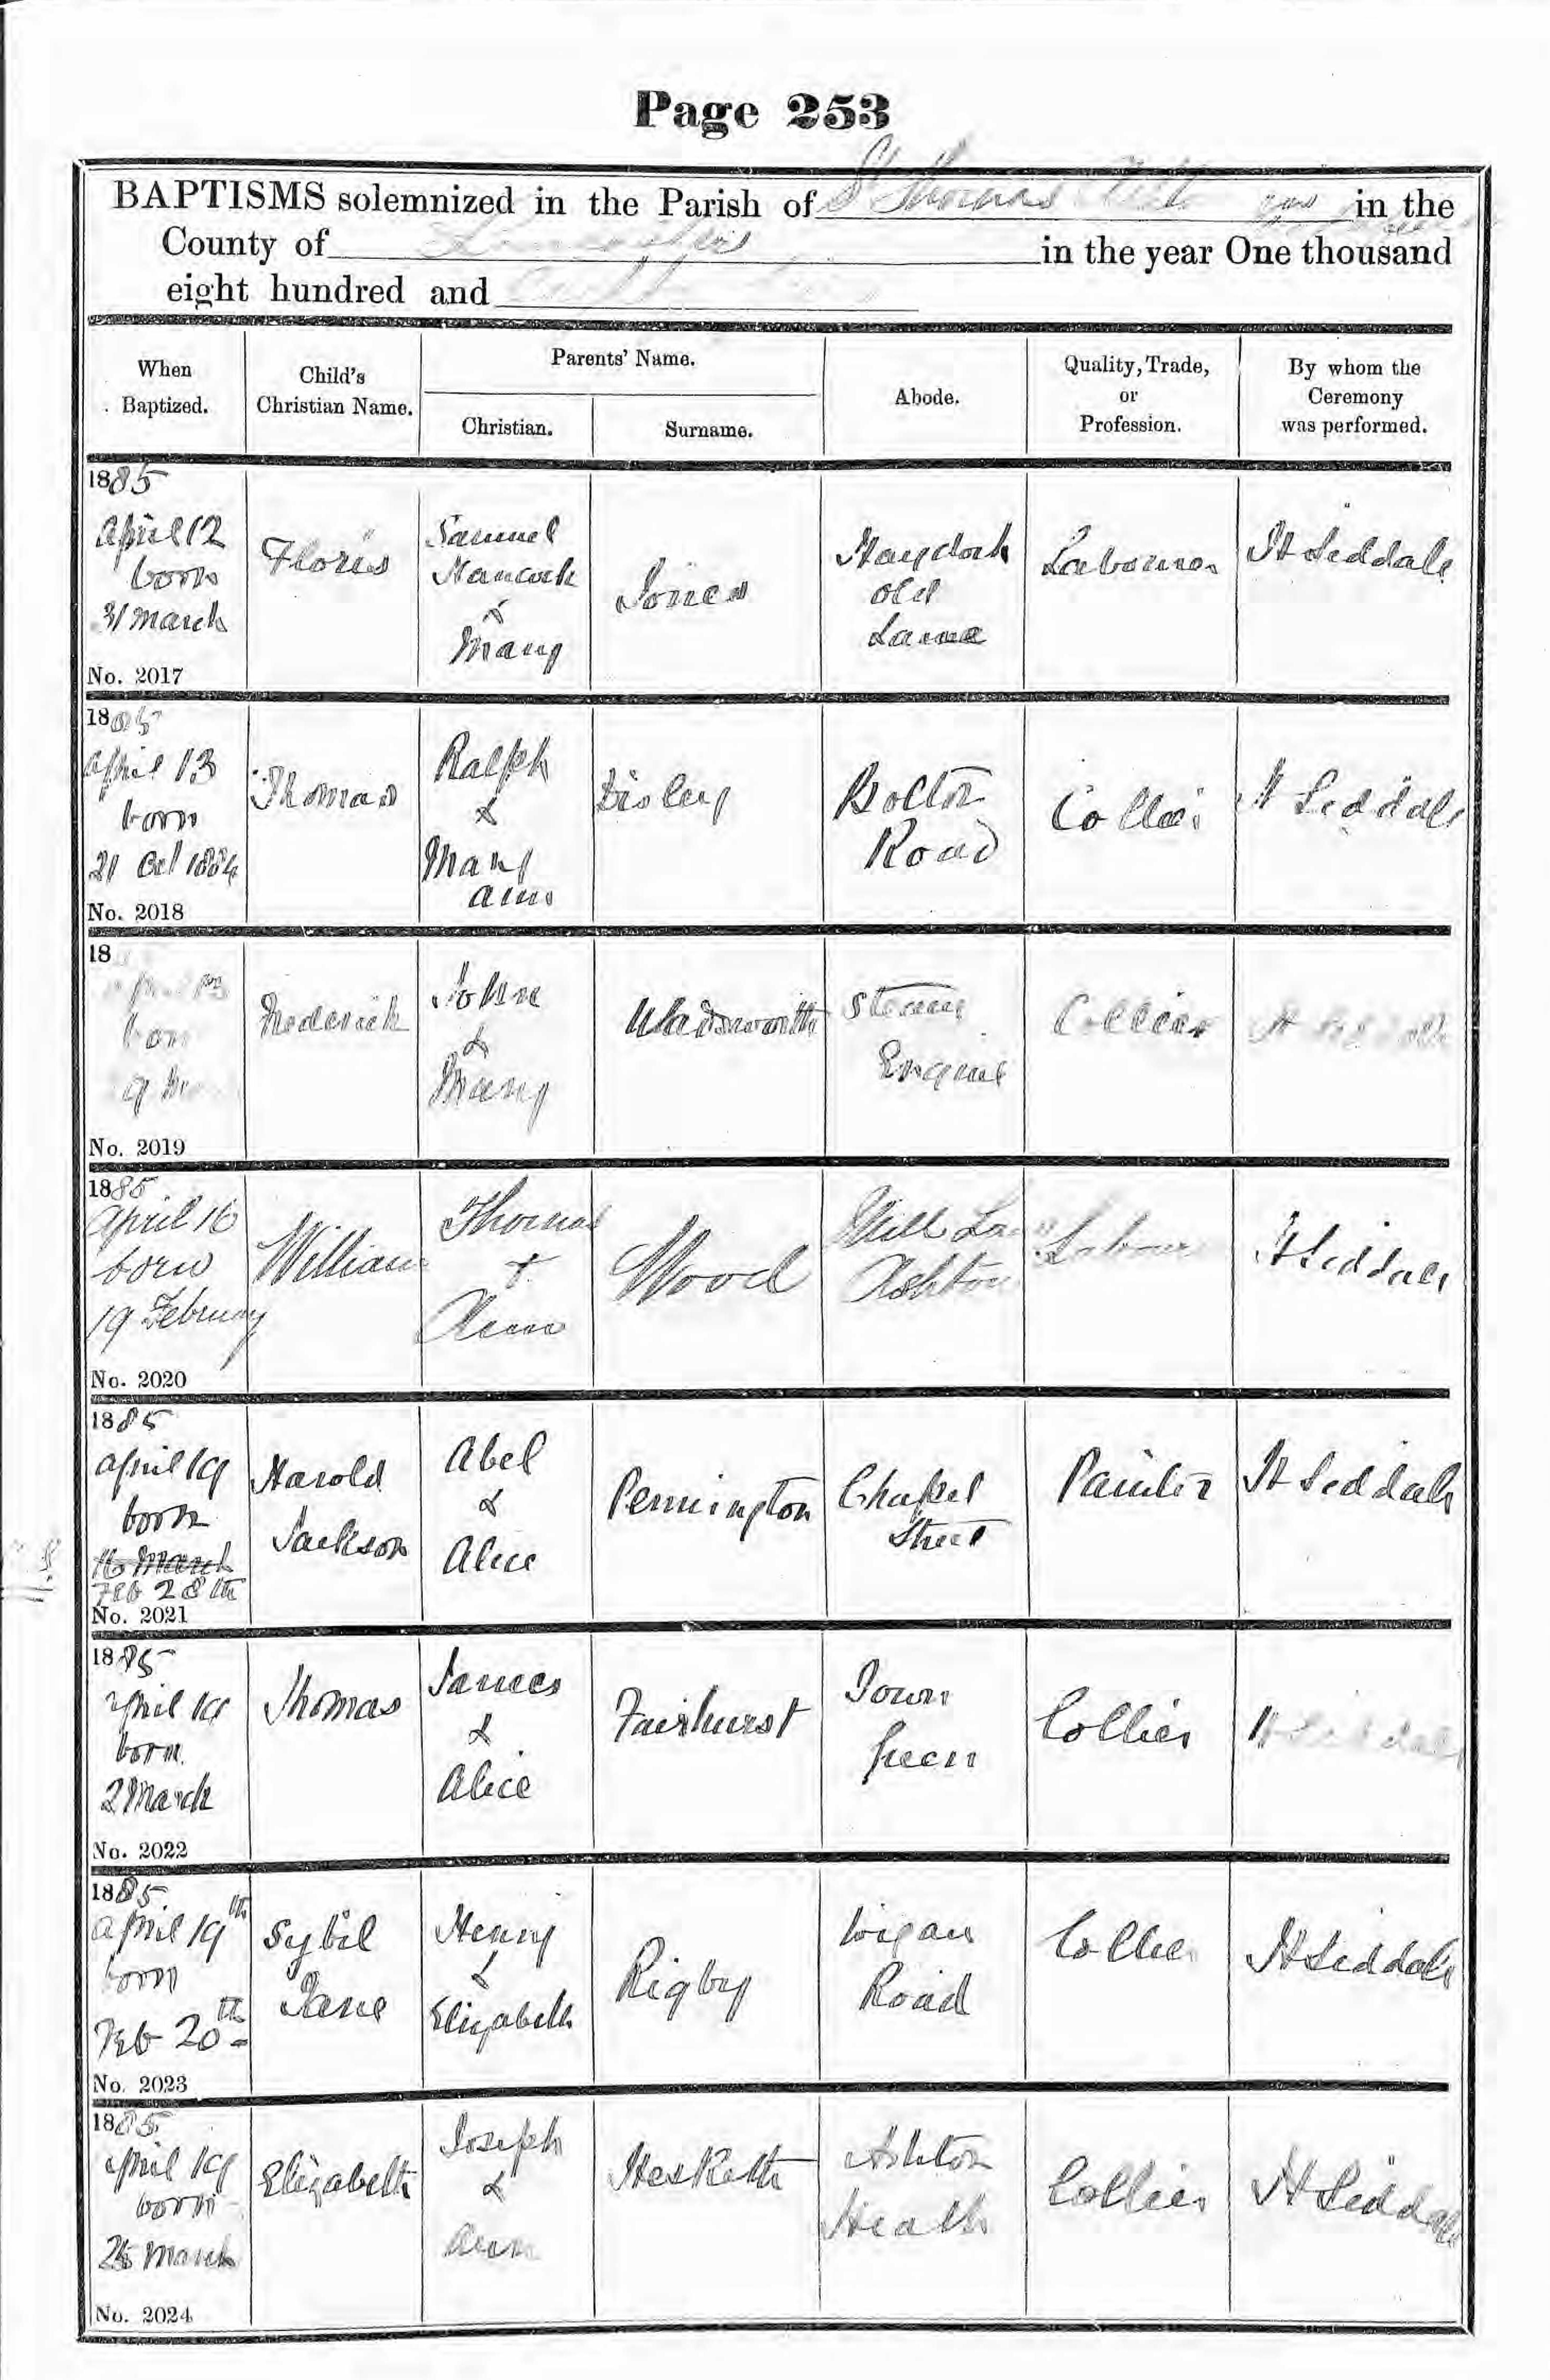 Page 253
BAPTISMS solemnized in the Parish of St Thomas in the
County of in the year One thousand
eight hundred and
When
Baptized.
Child's
Christian Name.
Parents' Name.
Christian.
Surname.
Abode.
Quality, Trade,
or
Profession.
By whom the
Ceremony
was performed.
1885
April 12
born
31 March
No. 2017
Floris
Samuel
Hancock
&
Mary
Jones
Haydock
Old
Lane
Labourer
H Siddall
1885
April 13
born
21 Oct 1884
No. 2018
Thomas
Ralph
&
Mary
Ann
Disley
Bolton
Road
Collier
H Siddall
18
born
9
No. 2019
Frederick
John
&
Mary
Wadsworth
Steam
Engine
Collier
1885
April 16
born
19 February
No. 2020
William
Thomas
&
Ann
Wood
Ashton
Labourer
H Siddall
1885
April 19
born
16 March
Feb 28th
No. 2021
Harold
Jackson
Abel
&
Alice
Pennington
Chapel
Street
Painter
H Siddall
1885
April 19
born
2 March
No. 2022
Thomas
James
&
Alice
Fairhurst
Town
Green
Collier
H Siddall
1885
April 19th
born
Feb 20th
No. 2023
Sybil
Jane
Henry
&
Elizabeth
Rigby
Wigan
Road
Collier
H Siddall
1885
April 19
born
March
No. 2024
Elizabeth
Joseph
&
Ann
Hesketh
Ashton
Heath
Collier
H Siddall